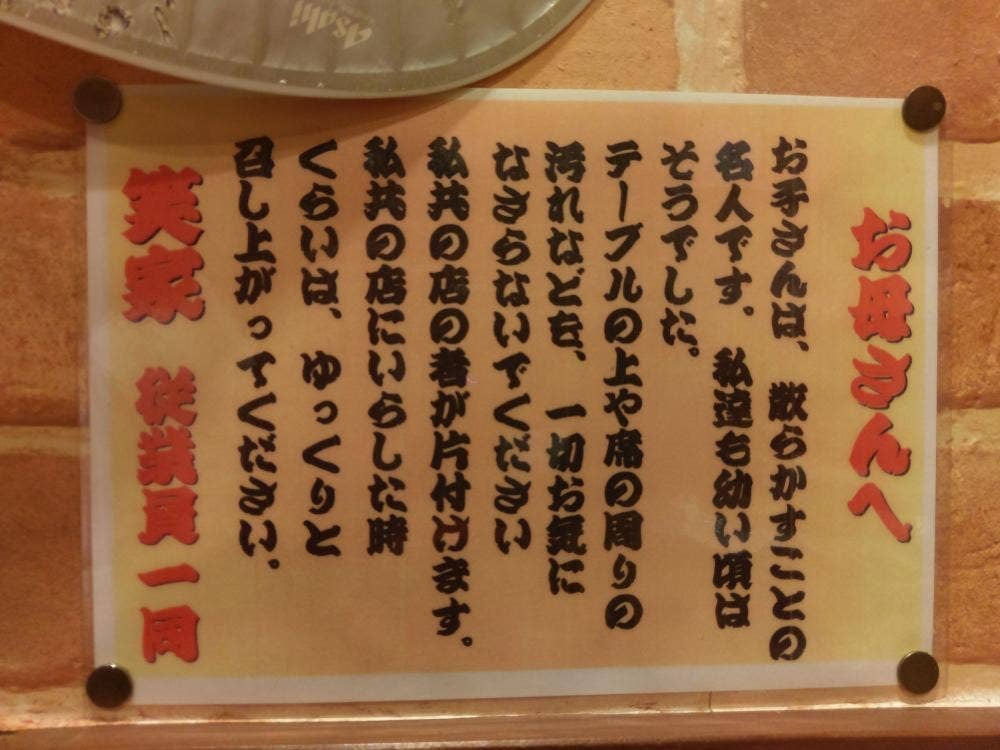 Asahi
お母さんへ
お子さんは、散らかすことの
名人です。私達も幼い頃は
そうでした。
テーブルの上や席の周りの
汚れなども、一切お気に
なさらないでください
私共の店の者が片付けます。
私共の店にいらした時
くらいは、ゆっくりと
召し上がってください。
笑家 従業員一同